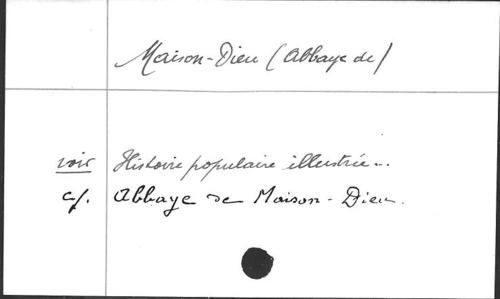 Maison-Dieu (Abbaye de)
voir Histoire populaire illustrée...
cf. Abbaye de Maison-Dieu.